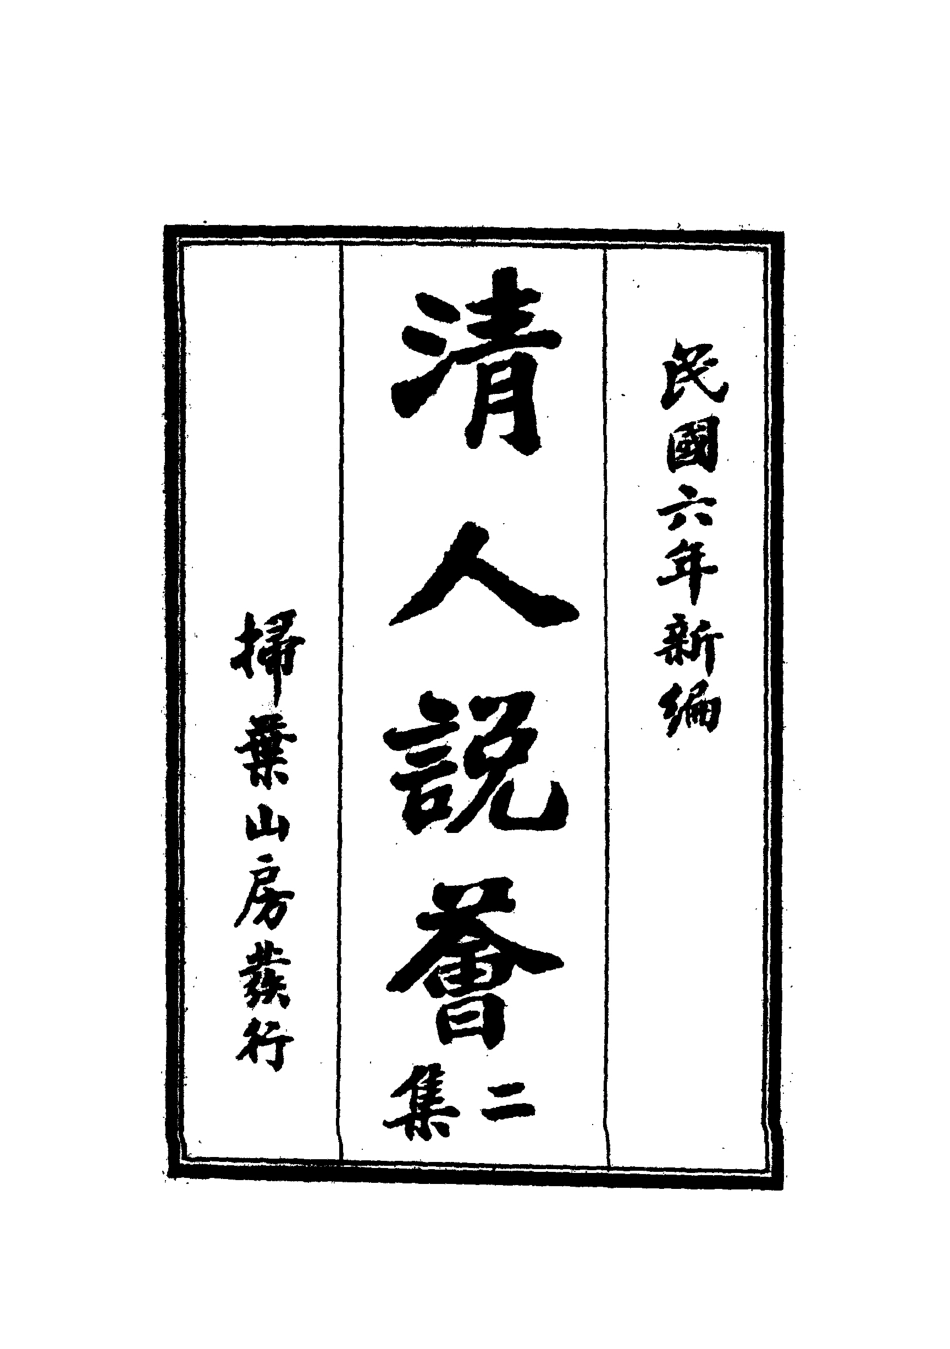 民國六年新編
清人説薈
二集
掃葉山房發行